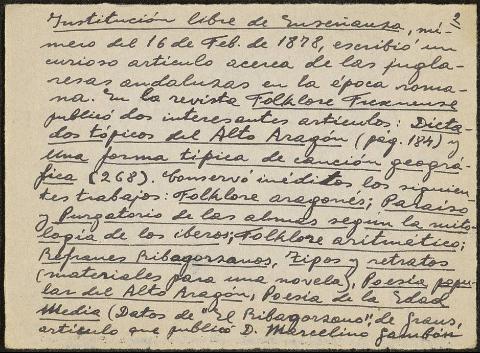 2
Institución libre de Enseñanza, nú-
mero del 16 de Feb. de 1878, escribió un
curioso artículo acerca de las jugla-
resas andaluzas en la época roma-
na. En la revista Folklore Frexnense
publicó dos interesantes artículos: Dicta-
dos tópicos del Alto Aragón (pág. 184) y
Una forma típica de canción geográ-
fica (268). Conservó inéditos los siguien-
tes trabajos: Folklore aragonés; Paraiso
y Purgatorio de las almas según la mito-
logía de los iberos; Folklore aritmético;
Refranes Ribagorzanos, Tipos y retratos
(materiales para una novela), Poesía popu-
lar del Alto Aragón; Poesía de la Edad
Media (Datos de "El Ribagorzano", de Graus,
artículo que publicó D. Marcelino Gambón